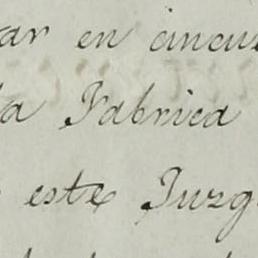 ar en circu
la Fabrica
este Juzg